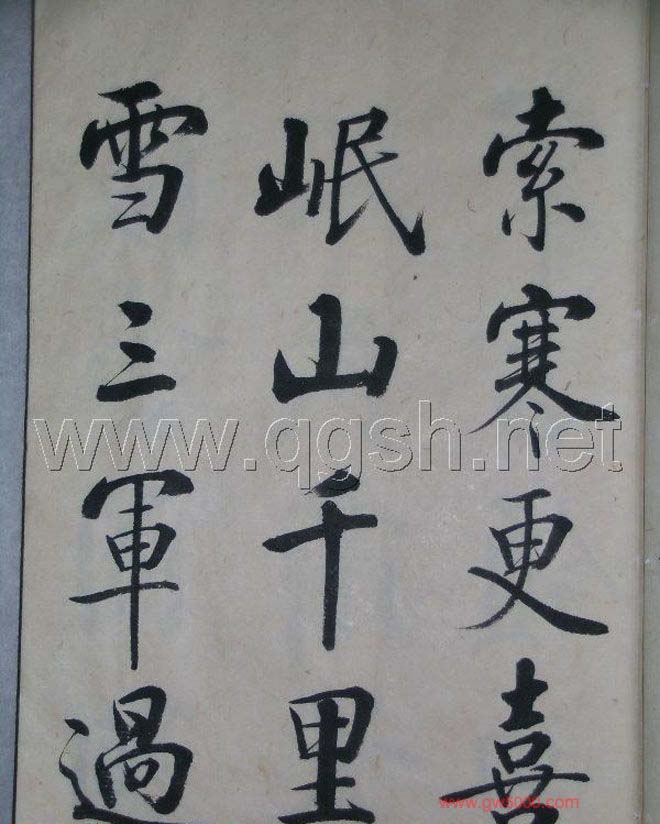 索寒更喜
岷山千里
雪三軍過
www.qgsh.net
www.gw8000.com